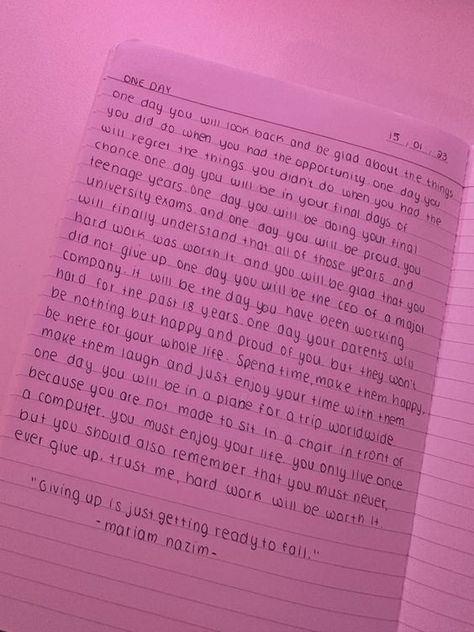 ONE DAY
15 . 01 . 23
one day you will look back and be glad about the things
you did do when you had the opportunity. one day you
will regret the things you didn't do when you had the
chance. one day you will be in your final days of
teenage years. one day you will be doing your final
university exams and one day you will be proud. you
will finally understand that all of those years and
hard work was worth it and you will be glad that you
did not give up. one day you will be the CEO of a major
company. it will be the day you have been working
hard for the past 18 years. one day your parents will
be nothing but happy and proud of you. but they won't
be here for your whole life. spend time, make them happy,
make them laugh and just enjoy your time with them
one day you will be in a plane for a trip worldwide
because you are not made to sit in a chair in front of
a computer. you must enjoy your life. you only live once
but you should also remember that you must never,
ever give up. trust me, hard work will be worth it.
"Giving up is just getting ready to fail."
- mariam nazim -